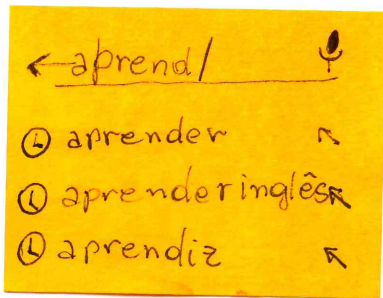 aprend
aprender
aprender inglês
aprendiz